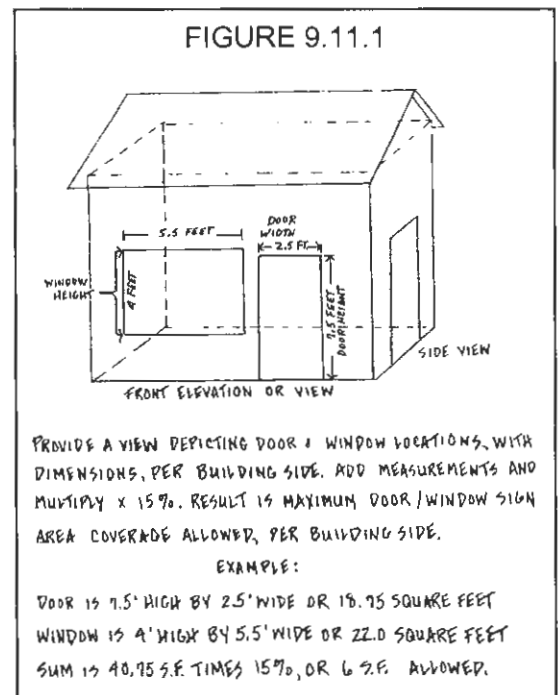 FIGURE 9.11.1
5.5 FEET
DOOR
WIDTH
2.5 FT.
WINDOW
HEIGHT
4 FEET
7.5 FEET
DOOR HEIGHT
SIDE VIEW
FRONT ELEVATION OR VIEW
PROVIDE A VIEW DEPICTING DOOR & WINDOW LOCATIONS, WITH
DIMENSIONS, PER BUILDING SIDE. ADD MEASUREMENTS AND
MULTIPLY X 15%. RESULT IS MAXIMUM DOOR/WINDOW SIGN
AREA COVERAGE ALLOWED, PER BUILDING SIDE.
EXAMPLE:
DOOR IS 7.5' HIGH BY 2.5' WIDE OR 18.75 SQUARE FEET
WINDOW IS 4' HIGH BY 5.5' WIDE OR 22.0 SQUARE FEET
SUM IS 40.75 S.F. TIMES 15%, OR 6 S.F. ALLOWED.